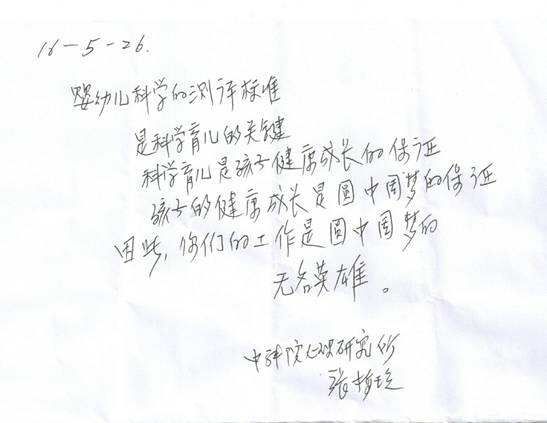 16-5-26.
婴幼儿科学的测评标准
是科学育儿的关键
科学育儿是孩子健康成长的保证
孩子的健康成长是圆中国梦的保证
因此,你们的工作是圆中国梦的
无名英雄。
中科院心理研究所
张梅玲